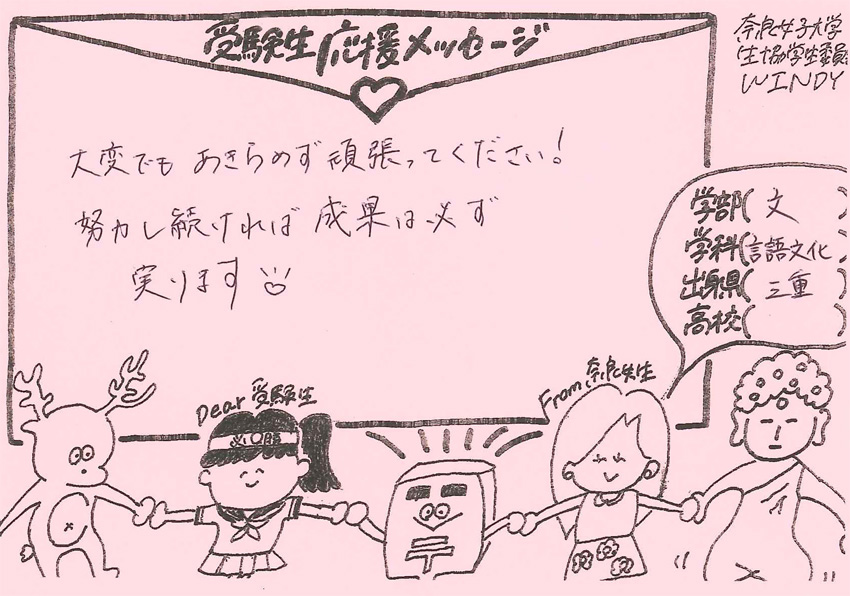 受験生応援メッセージ
奈良女子大学
生協学生委員
WINDY
大変でも あきらめず頑張ってください!
努力し続ければ 成果は必ず
実ります
学部(文)
学科(言語文化
出身県(三重)
高校( )
Dear 受験生
From 奈良女生
必勝
〒